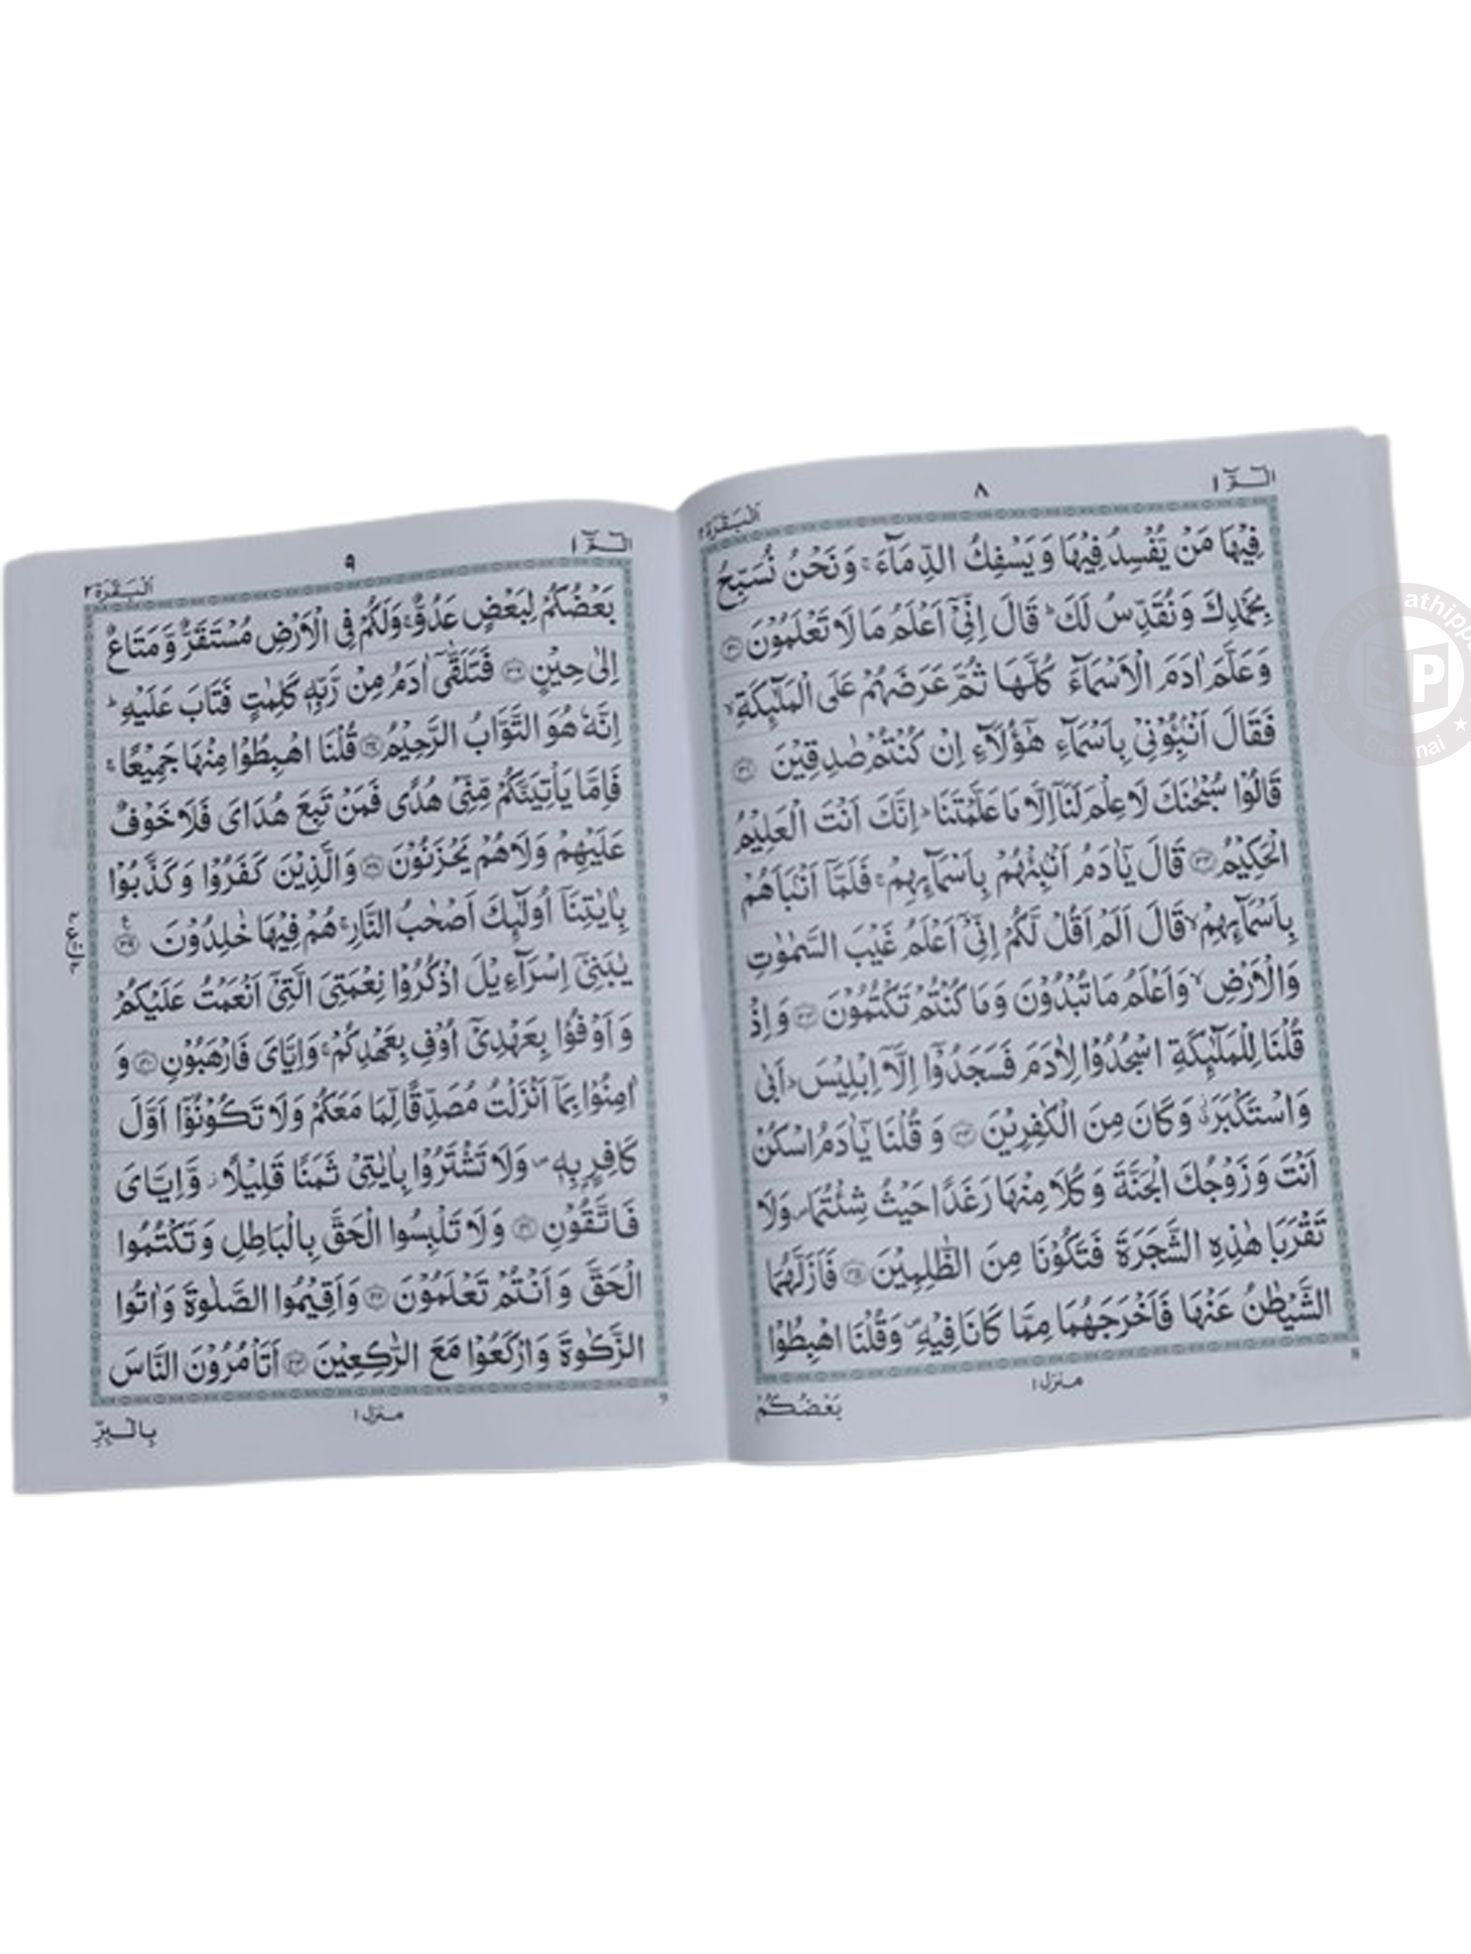 الٓمّٓ ١
٨
اَلْبَقَرَة ٢
فِيْهَا مَنْ يُّفْسِدُ فِيْهَا وَيَسْفِكُ الدِّمَآءَ ۚ وَنَحْنُ نُسَبِّحُ
بِحَمْدِكَ وَنُقَدِّسُ لَكَ ؕ قَالَ اِنِّىْٓ اَعْلَمُ مَا لَا تَعْلَمُوْنَ ﴿۳۰﴾
وَعَلَّمَ اٰدَمَ الْاَسْمَآءَ كُلَّهَا ثُمَّ عَرَضَهُمْ عَلَى الْمَلٰٓئِكَةِ ۙ
فَقَالَ اَنْۢبِـُٔوْنِىْ بِاَسْمَآءِ هٰٓؤُلَآءِ اِنْ كُنْتُمْ صٰدِقِيْنَ ﴿۳۱﴾
قَالُوْا سُبْحٰنَكَ لَا عِلْمَ لَنَآ اِلَّا مَا عَلَّمْتَنَا ؕ اِنَّكَ اَنْتَ الْعَلِيْمُ
الْحَكِيْمُ ﴿۳۲﴾ قَالَ يٰٓاٰدَمُ اَنْۢبِئْهُمْ بِاَسْمَآئِهِمْ ۚ فَلَمَّآ اَنْۢبَاَهُمْ
بِاَسْمَآئِهِمْ ۙ قَالَ اَلَمْ اَقُلْ لَّكُمْ اِنِّىْٓ اَعْلَمُ غَيْبَ السَّمٰوٰتِ
وَالْاَرْضِ ۙ وَاَعْلَمُ مَا تُبْدُوْنَ وَمَا كُنْتُمْ تَكْتُمُوْنَ ﴿۳۳﴾ وَاِذْ
قُلْنَا لِلْمَلٰٓئِكَةِ اسْجُدُوْا لِاٰدَمَ فَسَجَدُوْٓا اِلَّآ اِبْلِيْسَ ؕ اَبٰى
وَاسْتَكْبَرَ ۫ وَكَانَ مِنَ الْكٰفِرِيْنَ ﴿۳۴﴾ وَقُلْنَا يٰٓاٰدَمُ اسْكُنْ
اَنْتَ وَزَوْجُكَ الْجَنَّةَ وَكُلَا مِنْهَا رَغَدًا حَيْثُ شِئْتُمَا ۪ وَلَا
تَقْرَبَا هٰذِهِ الشَّجَرَةَ فَتَكُوْنَا مِنَ الظّٰلِمِيْنَ ﴿۳۵﴾ فَاَزَلَّهُمَا
الشَّيْطٰنُ عَنْهَا فَاَخْرَجَهُمَا مِمَّا كَانَا فِيْهِ ۪ وَقُلْنَا اهْبِطُوْا
منزل ١
بَعْضُكُمْ
الٓمّٓ ١
٩
اَلْبَقَرَة ٢
بَعْضُكُمْ لِبَعْضٍ عَدُوٌّ ۚ وَلَكُمْ فِى الْاَرْضِ مُسْتَقَرٌّ وَّمَتَاعٌ
اِلٰى حِيْنٍ ﴿۳۶﴾ فَتَلَقّٰٓى اٰدَمُ مِنْ رَّبِّهٖ كَلِمٰتٍ فَتَابَ عَلَيْهِ ؕ
اِنَّهٗ هُوَ التَّوَّابُ الرَّحِيْمُ ﴿۳۷﴾ قُلْنَا اهْبِطُوْا مِنْهَا جَمِيْعًا ۚ
فَاِمَّا يَاْتِيَنَّكُمْ مِّنِّىْ هُدًى فَمَنْ تَبِعَ هُدَاىَ فَلَا خَوْفٌ
عَلَيْهِمْ وَلَا هُمْ يَحْزَنُوْنَ ﴿۳۸﴾ وَالَّذِيْنَ كَفَرُوْا وَكَذَّبُوْا
بِاٰيٰتِنَآ اُولٰٓئِكَ اَصْحٰبُ النَّارِ ۚ هُمْ فِيْهَا خٰلِدُوْنَ ﴿۳۹﴾
يٰبَنِىْٓ اِسْرَآءِيْلَ اذْكُرُوْا نِعْمَتِىَ الَّتِىْٓ اَنْعَمْتُ عَلَيْكُمْ
وَاَوْفُوْا بِعَهْدِىْٓ اُوْفِ بِعَهْدِكُمْ ۚ وَاِيَّاىَ فَارْهَبُوْنِ ﴿۴۰﴾ وَ
اٰمِنُوْا بِمَآ اَنْزَلْتُ مُصَدِّقًا لِّمَا مَعَكُمْ وَلَا تَكُوْنُوْٓا اَوَّلَ
كَافِرٍۭ بِهٖ ۪ وَلَا تَشْتَرُوْا بِاٰيٰتِىْ ثَمَنًا قَلِيْلًا ۫ وَّاِيَّاىَ
فَاتَّقُوْنِ ﴿۴۱﴾ وَلَا تَلْبِسُوا الْحَقَّ بِالْبَاطِلِ وَتَكْتُمُوا
الْحَقَّ وَاَنْتُمْ تَعْلَمُوْنَ ﴿۴۲﴾ وَاَقِيْمُوا الصَّلٰوةَ وَاٰتُوا
الزَّكٰوةَ وَارْكَعُوْا مَعَ الرّٰكِعِيْنَ ﴿۴۳﴾ اَتَاْمُرُوْنَ النَّاسَ
٩
منزل ١
بِالْبِرِّ
SP
Chennai